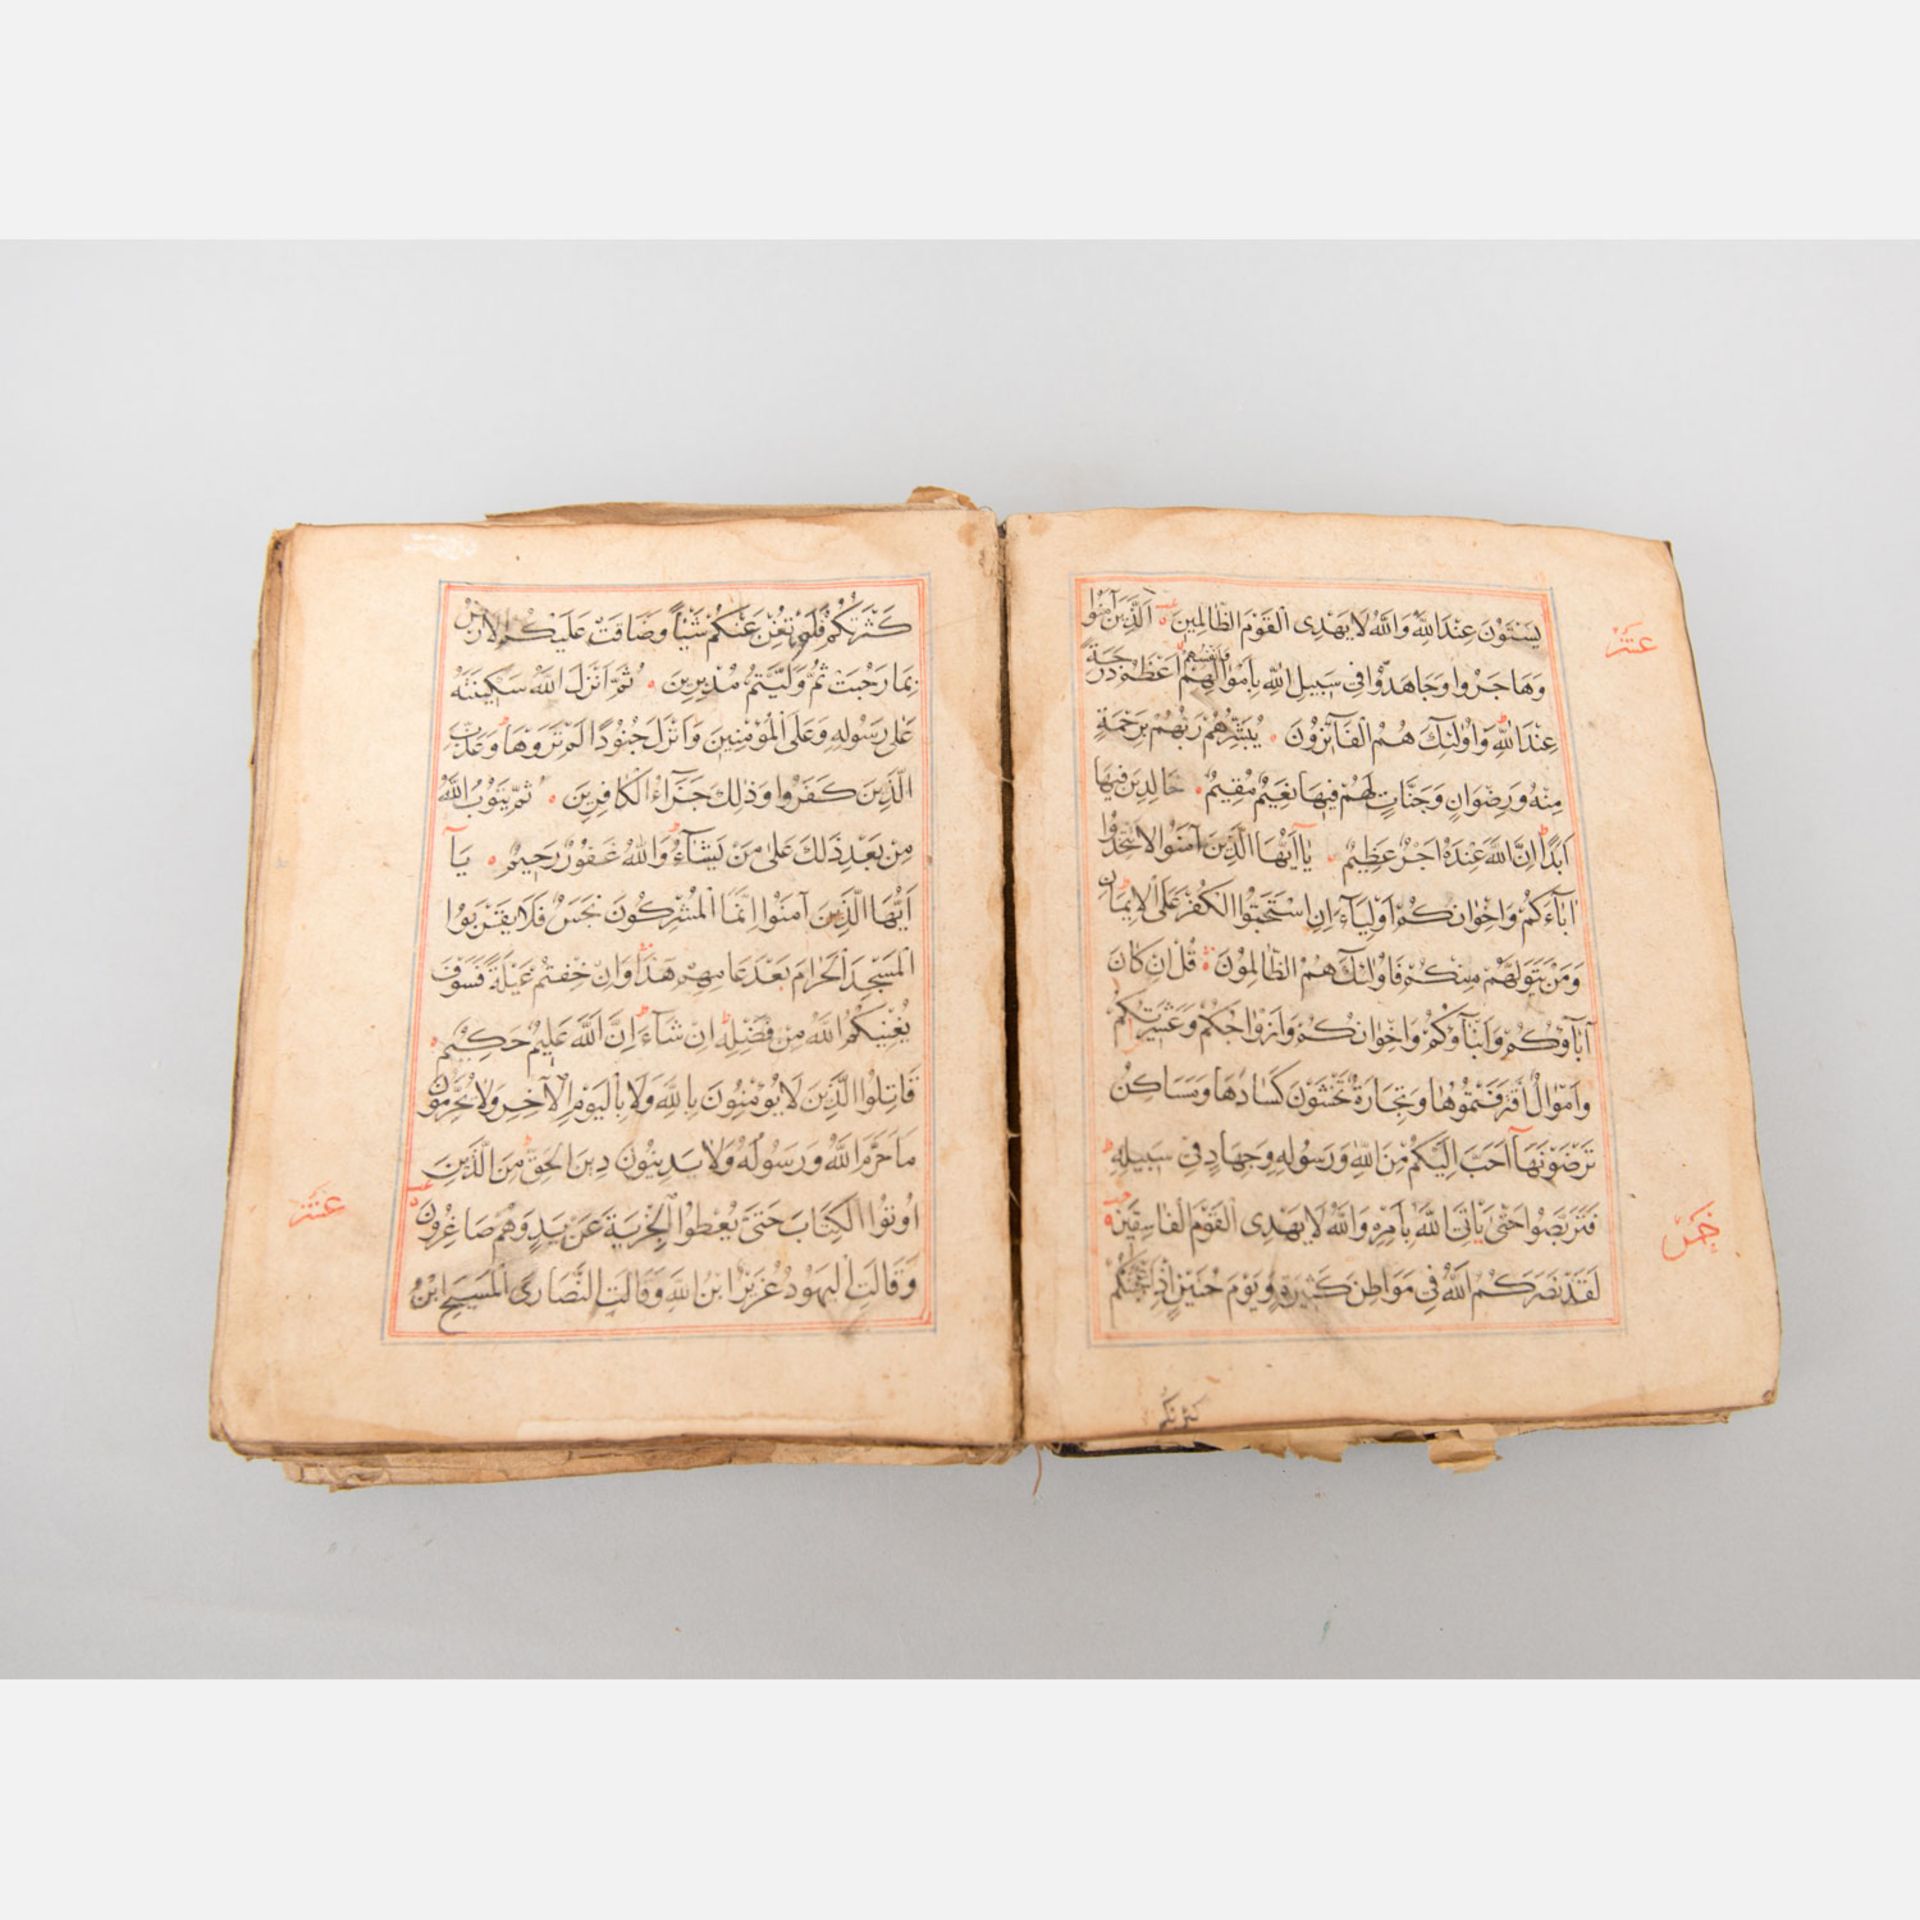 يَسْتَوُنَ عِنْدَ اللّٰهِ وَاللّٰهُ لَا يَهْدِى الْقَوْمَ الظَّالِمِينَ الَّذِينَ آمَنُوا
وَهَاجَرُوا وَجَاهَدُوا فِى سَبِيلِ اللّٰهِ بِاَمْوَالِهِمْ وَاَنْفُسِهِمْ اَعْظَمُ دَرَجَةً
عِنْدَ اللّٰهِ وَاُولٰئِكَ هُمُ الْفَآئِزُونَ يُبَشِّرُهُمْ رَبُّهُمْ بِرَحْمَةٍ
مِنْهُ وَرِضْوَانٍ وَجَنَّاتٍ لَهُمْ فِيهَا نَعِيمٌ مُقِيمٌ خَالِدِينَ فِيهَا
اَبَدًا اِنَّ اللّٰهَ عِنْدَهُ اَجْرٌ عَظِيمٌ يَآ اَيُّهَا الَّذِينَ آمَنُوا لَا تَتَّخِذُوا
اٰبَآءَكُمْ وَاِخْوَانَكُمْ اَوْلِيَآءَ اِنِ اسْتَحَبُّوا الْكُفْرَ عَلَى الْاِيمَانِ
وَمَنْ يَتَوَلَّهُمْ مِنْكُمْ فَاُولٰئِكَ هُمُ الظَّالِمُونَ قُلْ اِنْ كَانَ
آبَآؤُكُمْ وَاَبْنَآؤُكُمْ وَاِخْوَانُكُمْ وَاَزْوَاجُكُمْ وَعَشِيرَتُكُمْ
وَاَمْوَالٌ اقْتَرَفْتُمُوهَا وَتِجَارَةٌ تَخْشَوْنَ كَسَادَهَا وَمَسَاكِنُ
تَرْضَوْنَهَآ اَحَبَّ اِلَيْكُمْ مِنَ اللّٰهِ وَرَسُولِهِ وَجِهَادٍ فِى سَبِيلِهِ
فَتَرَبَّصُوا حَتّٰى يَاْتِىَ اللّٰهُ بِاَمْرِهِ وَاللّٰهُ لَا يَهْدِى الْقَوْمَ الْفَاسِقِينَ
لَقَدْ نَصَرَكُمُ اللّٰهُ فِى مَوَاطِنَ كَثِيرَةٍ وَيَوْمَ حُنَيْنٍ اِذْ اَعْجَبَتْكُمْ
كثرتكم
عشر
خمس
كَثْرَتُكُمْ فَلَمْ تُغْنِ عَنْكُمْ شَيْئًا وَضَاقَتْ عَلَيْكُمُ الْاَرْضُ
بِمَا رَحُبَتْ ثُمَّ وَلَّيْتُمْ مُدْبِرِينَ ثُمَّ اَنْزَلَ اللّٰهُ سَكِينَتَهُ
عَلٰى رَسُولِهِ وَعَلَى الْمُؤْمِنِينَ وَاَنْزَلَ جُنُودًا لَمْ تَرَوْهَا وَعَذَّبَ
الَّذِينَ كَفَرُوا وَذٰلِكَ جَزَآءُ الْكَافِرِينَ ثُمَّ يَتُوبُ اللّٰهُ
مِنْ بَعْدِ ذٰلِكَ عَلٰى مَنْ يَشَآءُ وَاللّٰهُ غَفُورٌ رَحِيمٌ يَآ
اَيُّهَا الَّذِينَ آمَنُوا اِنَّمَا الْمُشْرِكُونَ نَجَسٌ فَلَا يَقْرَبُوا
الْمَسْجِدَ الْحَرَامَ بَعْدَ عَامِهِمْ هٰذَا وَاِنْ خِفْتُمْ عَيْلَةً فَسَوْفَ
يُغْنِيكُمُ اللّٰهُ مِنْ فَضْلِهِ اِنْ شَآءَ اِنَّ اللّٰهَ عَلِيمٌ حَكِيمٌ
قَاتِلُوا الَّذِينَ لَا يُؤْمِنُونَ بِاللّٰهِ وَلَا بِالْيَوْمِ الْآخِرِ وَلَا يُحَرِّمُونَ
مَا حَرَّمَ اللّٰهُ وَرَسُولُهُ وَلَا يَدِينُونَ دِينَ الْحَقِّ مِنَ الَّذِينَ
اُوتُوا الْكِتَابَ حَتّٰى يُعْطُوا الْجِزْيَةَ عَنْ يَدٍ وَهُمْ صَاغِرُونَ
وَقَالَتِ الْيَهُودُ عُزَيْرٌ ابْنُ اللّٰهِ وَقَالَتِ النَّصَارَى الْمَسِيحُ ابْنُ
عشر